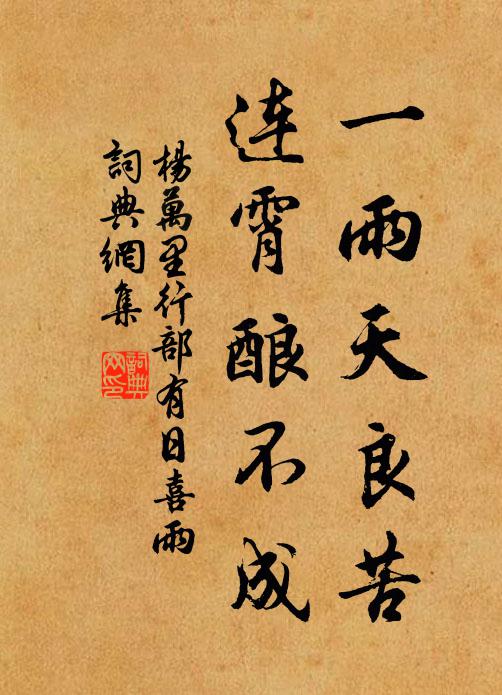 一雨天良苦
连霄酿不成
楊萬里行部有日喜雨
詞典網集
詞典
网印